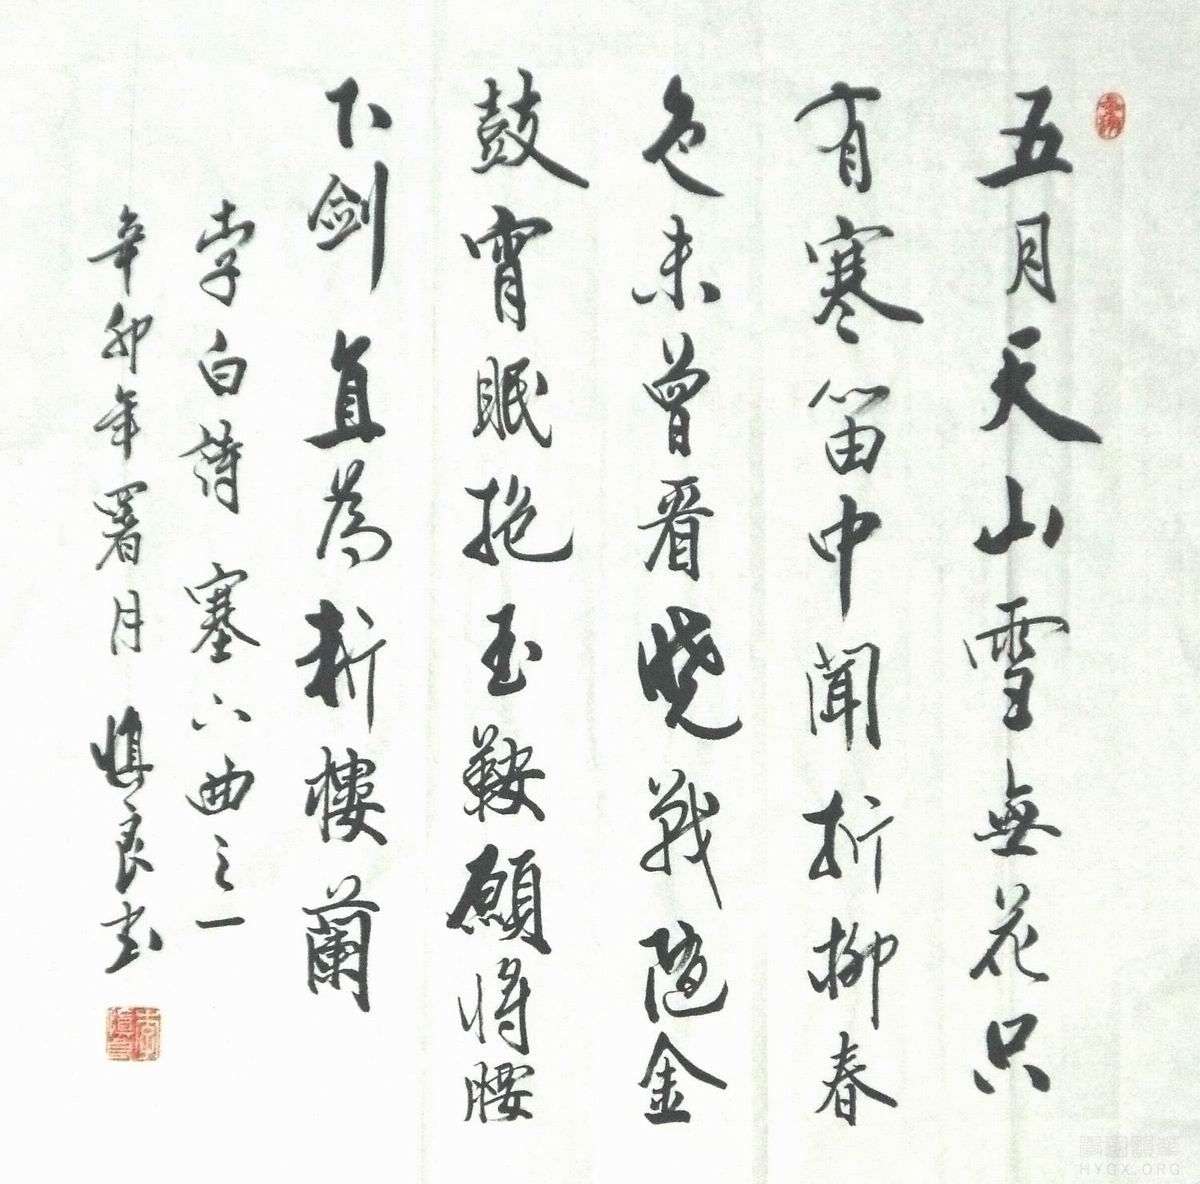 五月天山雪無花只
有寒笛中聞折柳春
色未曾看曉戰隨金
鼓宵眠抱玉鞍願將腰
下劍直為斬樓蘭
李白詩塞下曲之一
辛卯年署月慎良书
HYGX.ORG